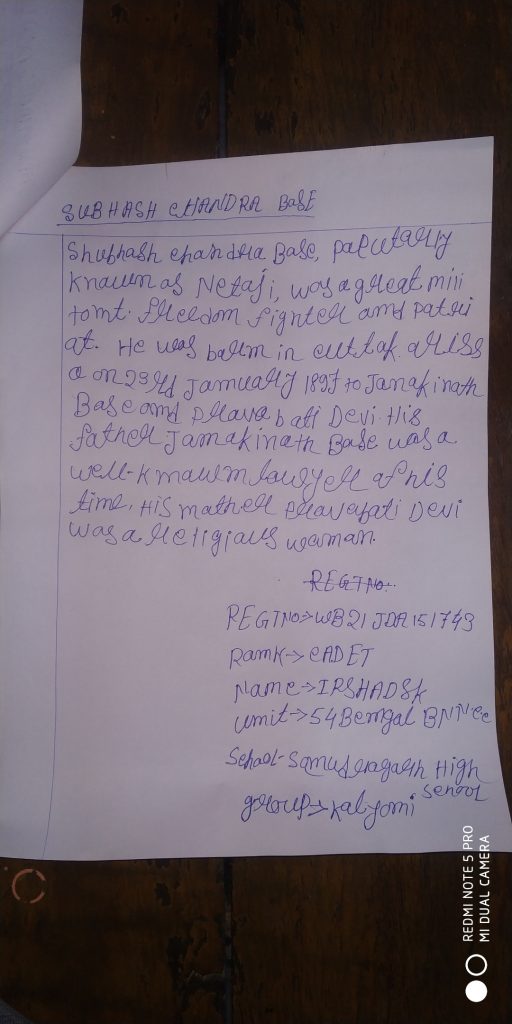 SUBHASH CHANDRA BaSE
Shubhash chandra Base, paputarly
knawn as Netaji, was a great mili
tomt. freedom fighter amd patri
at. He was barm in cuttak. ariss
a on 23rd Jamuary 1897 to Janakinath
Base amd prava bati Devi. His
father Jamakinath Base was a
well-knawm lawyer af his
time. His mather pravapati Devi
was a religiaus waman.
REGTNO..
REGTNO→WB21JDA151743
Ramk→CADET
Name→IRSHADSK
umit→54Bemgal BNNCC
School-Samudragarh High
School
group→kalyomi
REDMI NOTE 5 PRO
MI DUAL CAMERA